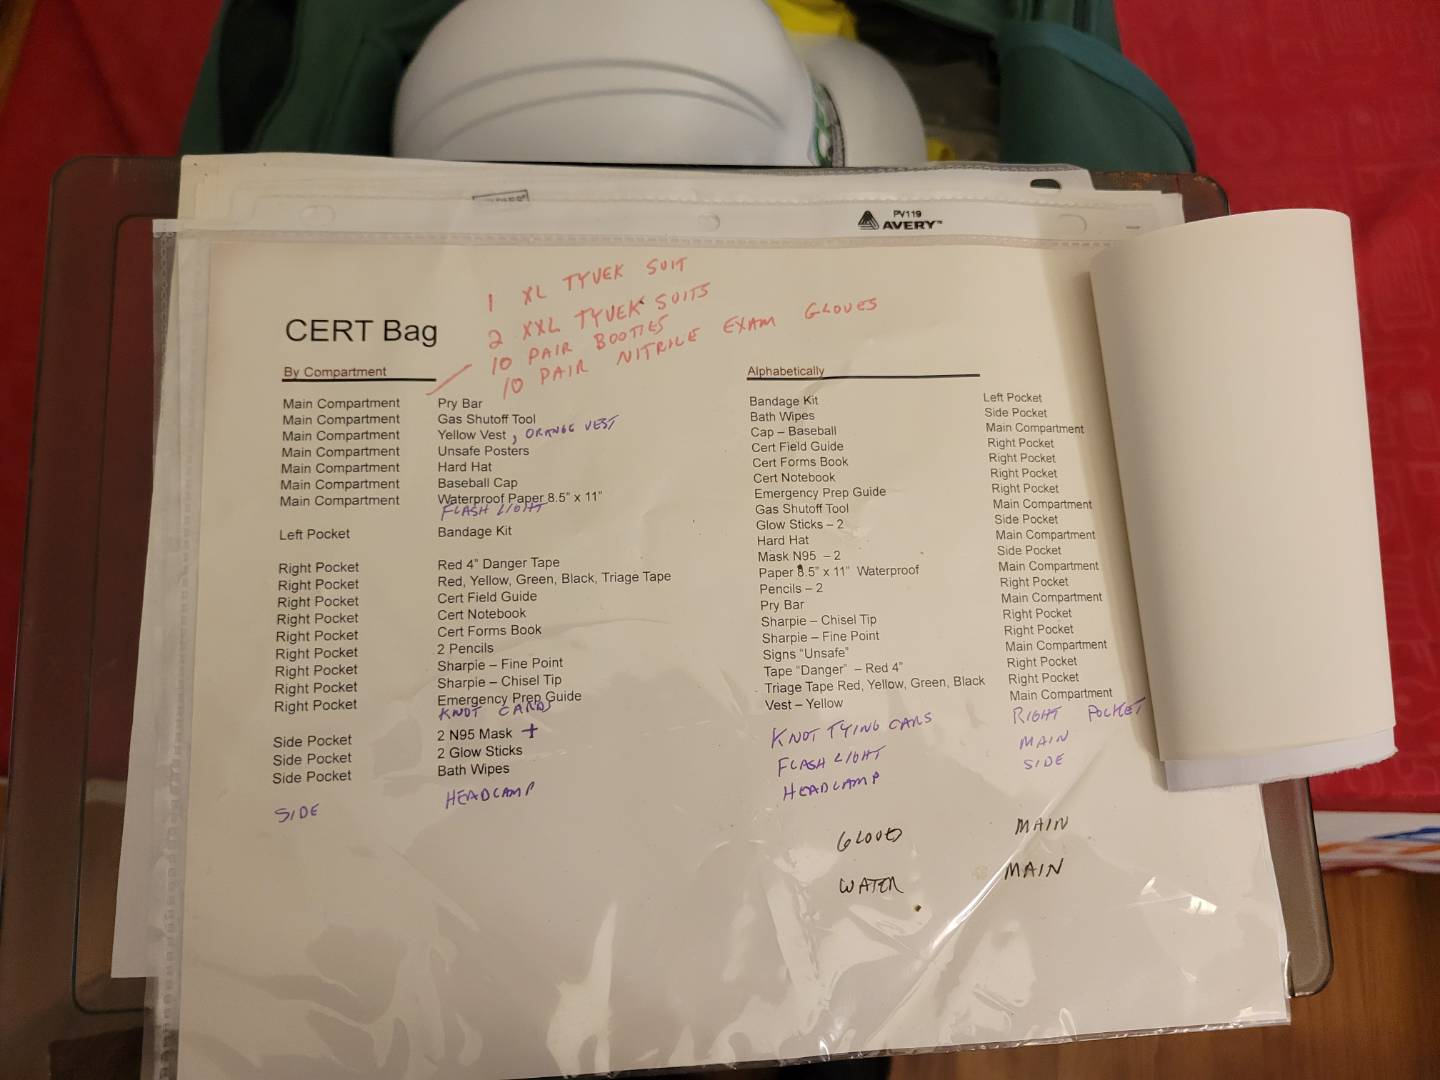 PV119
AVERY™
1 XL TYVEK SUIT
2 XXL TYVEK SUITS
10 PAIR BOOTIES
10 PAIR NITRILE EXAM GLOVES
CERT Bag
By Compartment
Main Compartment Pry Bar
Main Compartment Gas Shutoff Tool
Main Compartment Yellow Vest , ORANGE VEST
Main Compartment Unsafe Posters
Main Compartment Hard Hat
Main Compartment Baseball Cap
Main Compartment Waterproof Paper 8.5" x 11"
FLASH LIGHT
Left Pocket Bandage Kit
Right Pocket Red 4" Danger Tape
Right Pocket Red, Yellow, Green, Black, Triage Tape
Right Pocket Cert Field Guide
Right Pocket Cert Notebook
Right Pocket Cert Forms Book
Right Pocket 2 Pencils
Right Pocket Sharpie – Fine Point
Right Pocket Sharpie – Chisel Tip
Right Pocket Emergency Prep Guide
KNOT CARDS
Side Pocket 2 N95 Mask +
Side Pocket 2 Glow Sticks
Side Pocket Bath Wipes
SIDE HEADLAMP
Alphabetically
Bandage Kit Left Pocket
Bath Wipes Side Pocket
Cap – Baseball Main Compartment
Cert Field Guide Right Pocket
Cert Forms Book Right Pocket
Cert Notebook Right Pocket
Emergency Prep Guide Right Pocket
Gas Shutoff Tool Main Compartment
Glow Sticks – 2 Side Pocket
Hard Hat Main Compartment
Mask N95 – 2 Side Pocket
Paper 8.5" x 11" Waterproof Main Compartment
Pencils – 2 Right Pocket
Pry Bar Main Compartment
Sharpie – Chisel Tip Right Pocket
Sharpie – Fine Point Right Pocket
Signs "Unsafe" Main Compartment
Tape "Danger" – Red 4" Right Pocket
Triage Tape Red, Yellow, Green, Black Right Pocket
Vest – Yellow Main Compartment
KNOT TYING CARS RIGHT POCKET
FLASH LIGHT MAIN
HEADLAMP SIDE
GLOVES MAIN
WATER MAIN